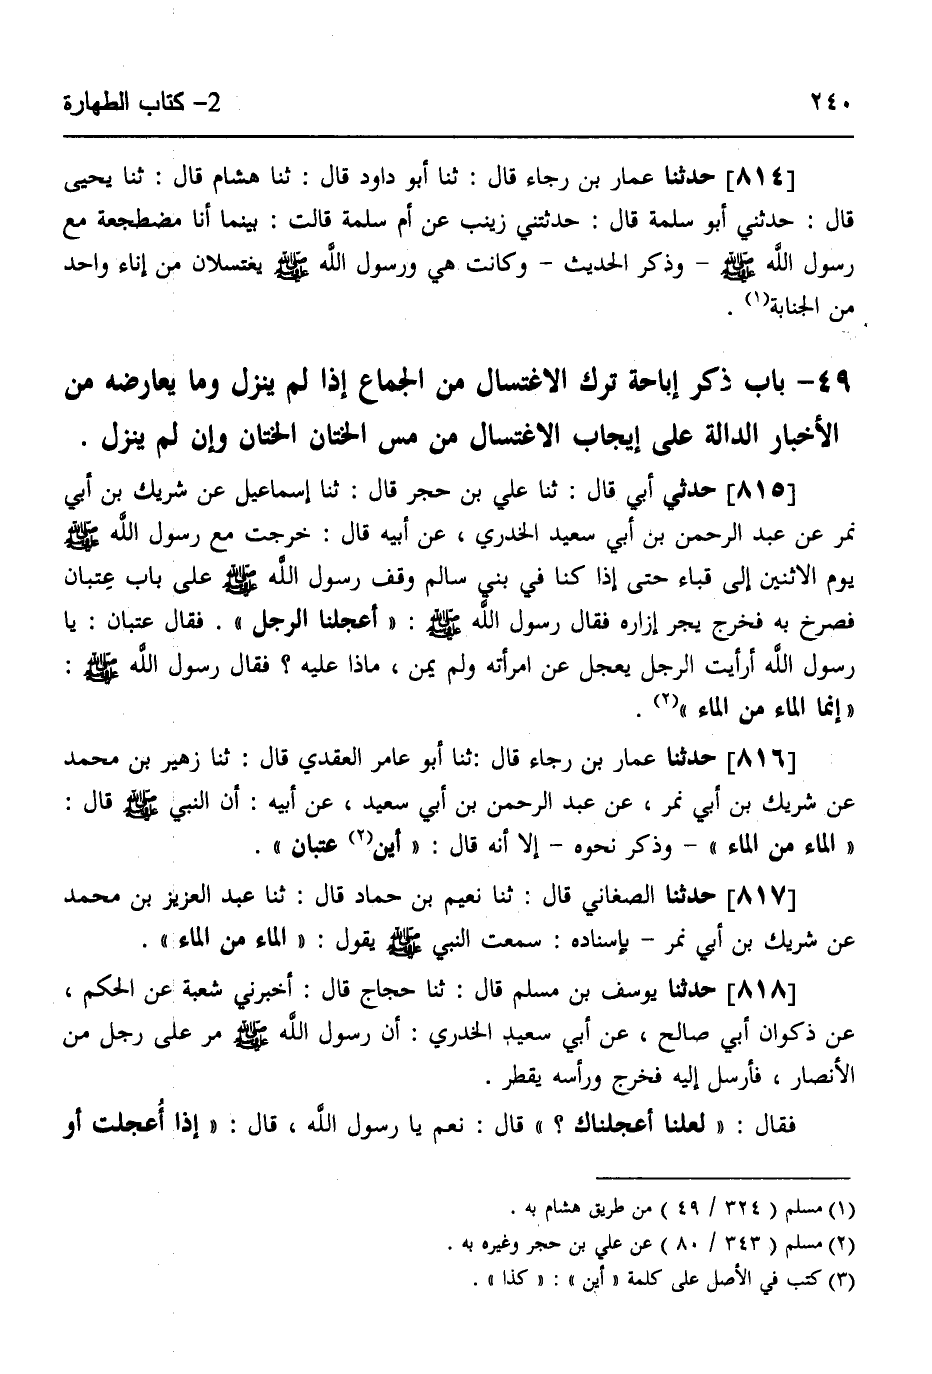 ٢٤٠ 2- كتاب الطهارة
[٨١٤] حدثنا عمار بن رجاء قال : ثنا أبو داود قال : ثنا هشام قال : ثنا يحيى
قال : حدثني أبو سلمة قال : حدثتني زينب عن أم سلمة قالت : بينما أنا مضطجعة مع
رسول اللَّه ﷺ – وذكر الحديث – وكانت هي ورسول اللَّه ﷺ يغتسلان من إناء واحد
من الجنابة(١) .
٤٩- باب ذكر إباحة ترك الاغتسال من الجماع إذا لم ينزل وما يعارضه من
الأخبار الدالة على إيجاب الاغتسال من مس الختان الختان وإن لم ينزل .
[٨١٥] حدثي أبي قال : ثنا علي بن حجر قال : ثنا إسماعيل عن شريك بن أبي
نمر عن عبد الرحمن بن أبي سعيد الخدري ، عن أبيه قال : خرجت مع رسول اللَّه ﷺ
يوم الاثنين إلى قباء حتى إذا كنا في بني سالم وقف رسول اللَّه ﷺ على باب عِتبان
فصرخ به فخرج يجر إزاره فقال رسول اللَّه ﷺ : « أعجلنا الرجل » . فقال عتبان : يا
رسول اللَّه أرأيت الرجل يعجل عن امرأته ولم يمن ، ماذا عليه ؟ فقال رسول اللَّه ﷺ :
« إنما الماء من الماء »(٢) .
[٨١٦] حدثنا عمار بن رجاء قال :ثنا أبو عامر العقدي قال : ثنا زهير بن محمد
عن شريك بن أبي نمر ، عن عبد الرحمن بن أبي سعيد ، عن أبيه : أن النبي ﷺ قال :
« الماء من الماء » – وذكر نحوه – إلا أنه قال : « أين(٢) عتبان » .
[٨١٧] حدثنا الصغاني قال : ثنا نعيم بن حماد قال : ثنا عبد العزيز بن محمد
عن شريك بن أبي نمر – بإسناده : سمعت النبي ﷺ يقول : « الماء من الماء » .
[٨١٨] حدثنا يوسف بن مسلم قال : ثنا حجاج قال : أخبرني شعبة عن الحكم ،
عن ذكوان أبي صالح ، عن أبي سعيد الخدري : أن رسول اللَّه ﷺ مر على رجل من
الأنصار ، فأرسل إليه فخرج ورأسه يقطر .
فقال : « لعلنا أعجلناك ؟ » قال : نعم يا رسول اللَّه ، قال : « إذا أُعجلت أو
(١) مسلم ( ٣٢٤ / ٤٩ ) من طريق هشام به .
(٢) مسلم ( ٣٤٣ / ٨٠ ) عن علي بن حجر وغيره به .
(٣) كتب في الأصل على كلمة « أين » : « كذا » .